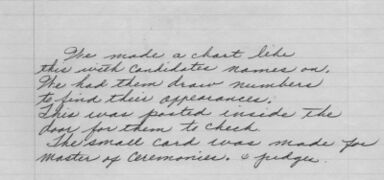 We made a chart like
this with candidates names on.
We had them draw numbers
to find their appearances.
This was posted inside the
door for them to check
The small card was made for
Master of Ceremonies. & judges.